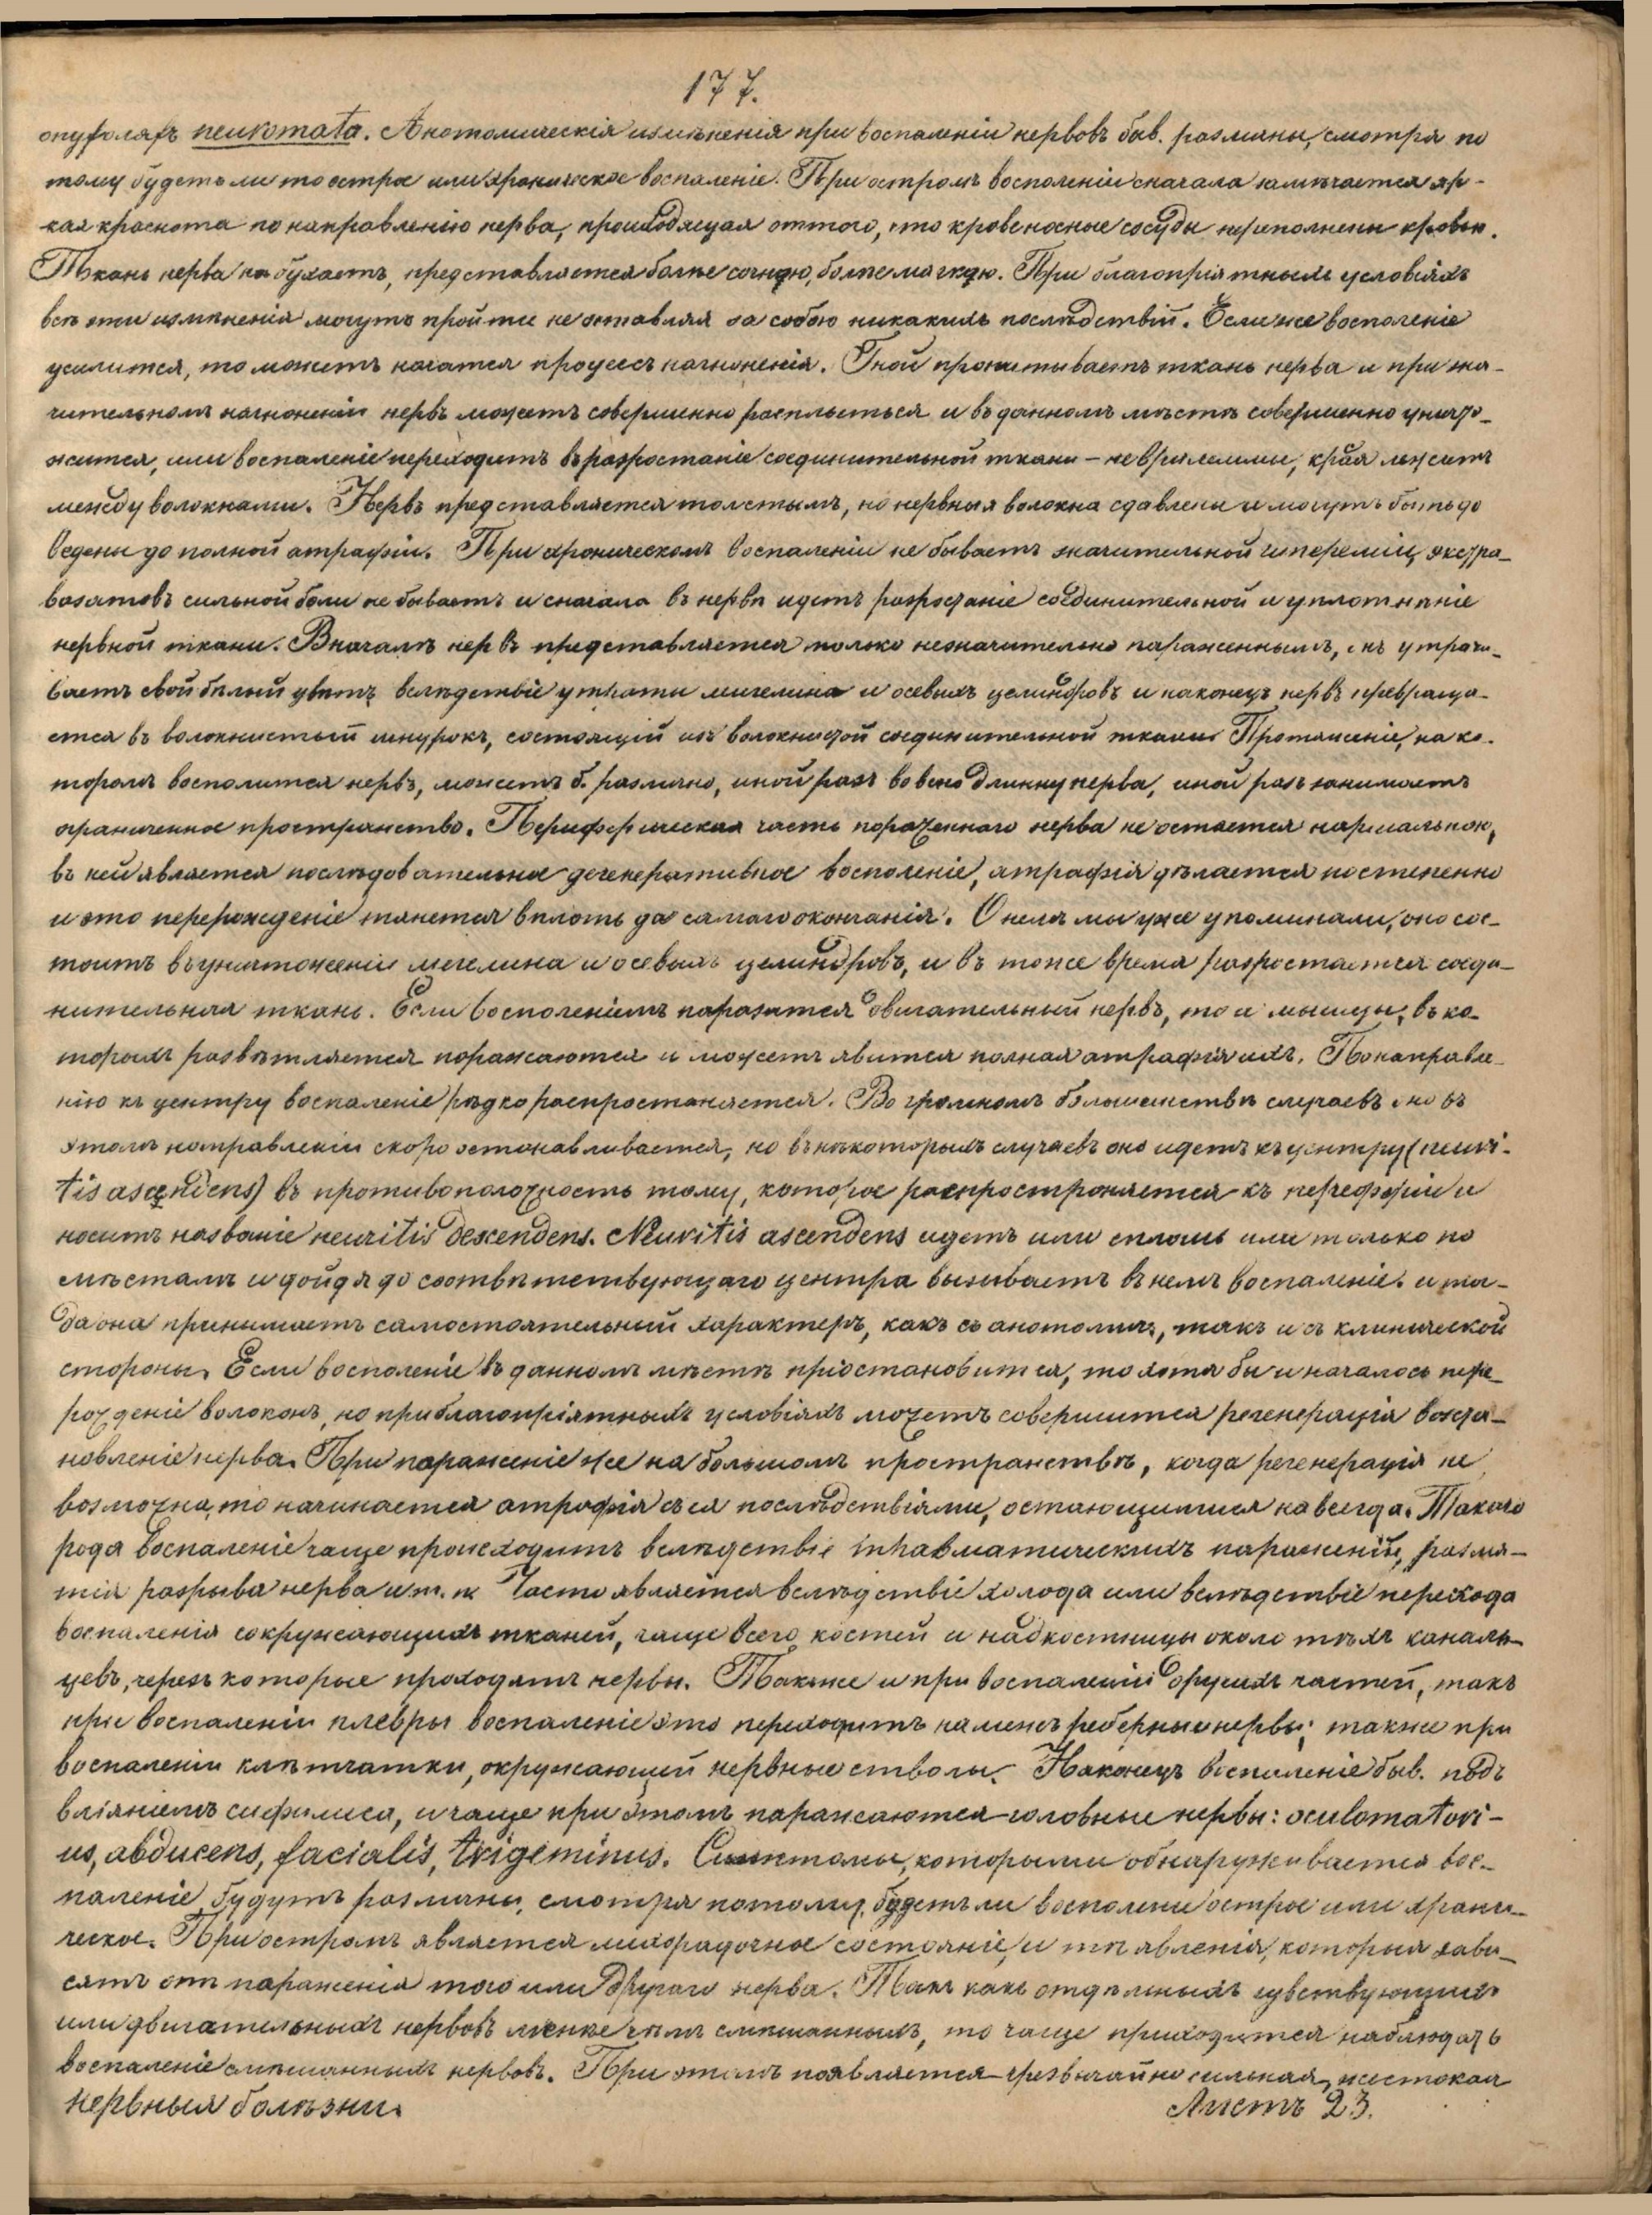 177.
опухоляхъ neuromata. Анотомическія измѣненія при воспаленіи нервовъ быв. различны, смотря по
тому будетъ ли то острое или хроническое воспаленіе. При остромъ восполеніи сначала замѣчается яр-
кая краснота по направленію нерва, происходящая оттого, что кровеносные сосуды переполнены кровью.
Ткань нерва набухаетъ, представляется болѣе сочною, болѣе мягкою. При благопріятныхъ условіяхъ
всѣ эти измѣненія могутъ пройти не оставляя за собою никакихъ послѣдствій. Если же восполеніе
усилится, то можетъ начатся процессъ нагноенія. Гной пропитываетъ ткань нерва и при зна-
чительномъ нагноеніи нервъ можетъ совершенно расплыться и въ данномъ мѣстѣ совершенно уничто-
жится, или воспаленіе переходитъ въ разростаніе соединительной ткани - неврилеммы, край лежитъ
между волокнами. Нервъ представляется толстымъ, но нервныя волокна сдавлены и могутъ быть до
ведены до полной атрафіи. При хроническомъ воспаленіи не бываетъ значительной гипереміи, экстра-
вазатовъ сильной боли не бываетъ и сначала въ нервѣ идетъ разростаніе соединительной и уплотнѣніе
нервной ткани. Вначалѣ нервъ представляется только незначительно параженнымъ, онъ утрачи-
ваетъ свой бѣлый цвѣтъ вслѣдствіе утраты миелина и осевыхъ целиндровъ и наконецъ нервъ превраща-
ется въ волокнистый шнурокъ, состоящій изъ волокнистой соединительной ткани. Протяженіе, на ко-
торомъ восполится нервъ, можетъ б. различно, иной разъ во всю длинну нерва, иной разъ занимаетъ
ограниченное пространство. Периферическая часть пораженнаго нерва не остается нармальною,
въ ней является послѣдовательное дегенеративное восполеніе, атрафія дѣлается постепенно
и это перерожденіе тянется вплоть до самаго окончанія. О немъ мы уже упоминали, оно сос-
тоитъ въ уничтоженіи миелина и осевыхъ целиндровъ, и въ тоже время разростается соеди-
нительная ткань. Если восполеніемъ паразится двигательный нервъ, то и мышцы, въ ко-
торыхъ развѣтляется поражаются и можетъ явится полная атрафія ихъ. По направле-
нію къ центру воспаленіе рѣдко распростаняется. Во громномъ большенствѣ случаевъ оно въ
этомъ направленіи скоро останавливается, но въ нѣкоторыхъ случаевъ оно идетъ къ центру (neuri-
tis ascendens) въ противоположность тому, которое распространяется къ переферіи и
носитъ названіе neuritis descendens. Neuritis ascendens идетъ или сплошь или только по
мѣстамъ и дойдя до соотвѣтствующаго центра вызываетъ въ немъ воспаленіе. и тог-
да она принимаетъ самостоятельный характеръ, какъ съ анотомич., такъ и съ клинической
стороны. Если восполеніе въ данномъ мѣстѣ пріостановится, то хотя бы и началось пере-
рожденіе волоконъ, но при благопріятныхъ условіяхъ можетъ совершится регенерація возста-
новленіе нерва. При параженіе же на большомъ пространствѣ, когда регенерація не
возможна, то начинается атрофія съ ея послѣдствіями, остающимися на всегда. Такого
рода воспаленіе чаще происходитъ вслѣдствіе травматическихъ параженій, размя-
тія разрыва нерва и т. п. Часто является вслѣдствіе холода или вслѣдствіе перехода
воспаленія сокружающихъ тканей, чаще всего костей и надкостницы около тѣхъ каналь-
цевъ, черезъ которые проходятъ нервы. Также и при воспаленіи другихъ частей, такъ
при воспаленіи плевры воспаленіе это переходитъ на межъреберные нервы; также при
воспаленіи клѣтчатки, окружающей нервные стволы. Наконецъ воспаленіе быв. подъ
вліяніемъ сифилиса, и чаще при этомъ паражаются головные нервы: oculomatori-
us, abducens, facialis, trigeminus. Симптомы, которыми обнаруживается вос-
паленіе будутъ различны, смотря потому, будетъ ли восполеніе острое или храни-
ческое. При остромъ является лихорадочное состояніе, и тѣ явленія, которыя зави-
сятъ отъ параженія того или другого нерва. Такъ какъ отдѣльныхъ чувствующихъ
или двигательныхъ нервовъ менѣе чѣмъ смѣшанныхъ, то чаще приходится наблюдать
воспаленіе смѣшанныхъ нервовъ. При этомъ появляется чрезвычайно сильная, жестокая
Нервныя болѣзни.
Листъ 23.